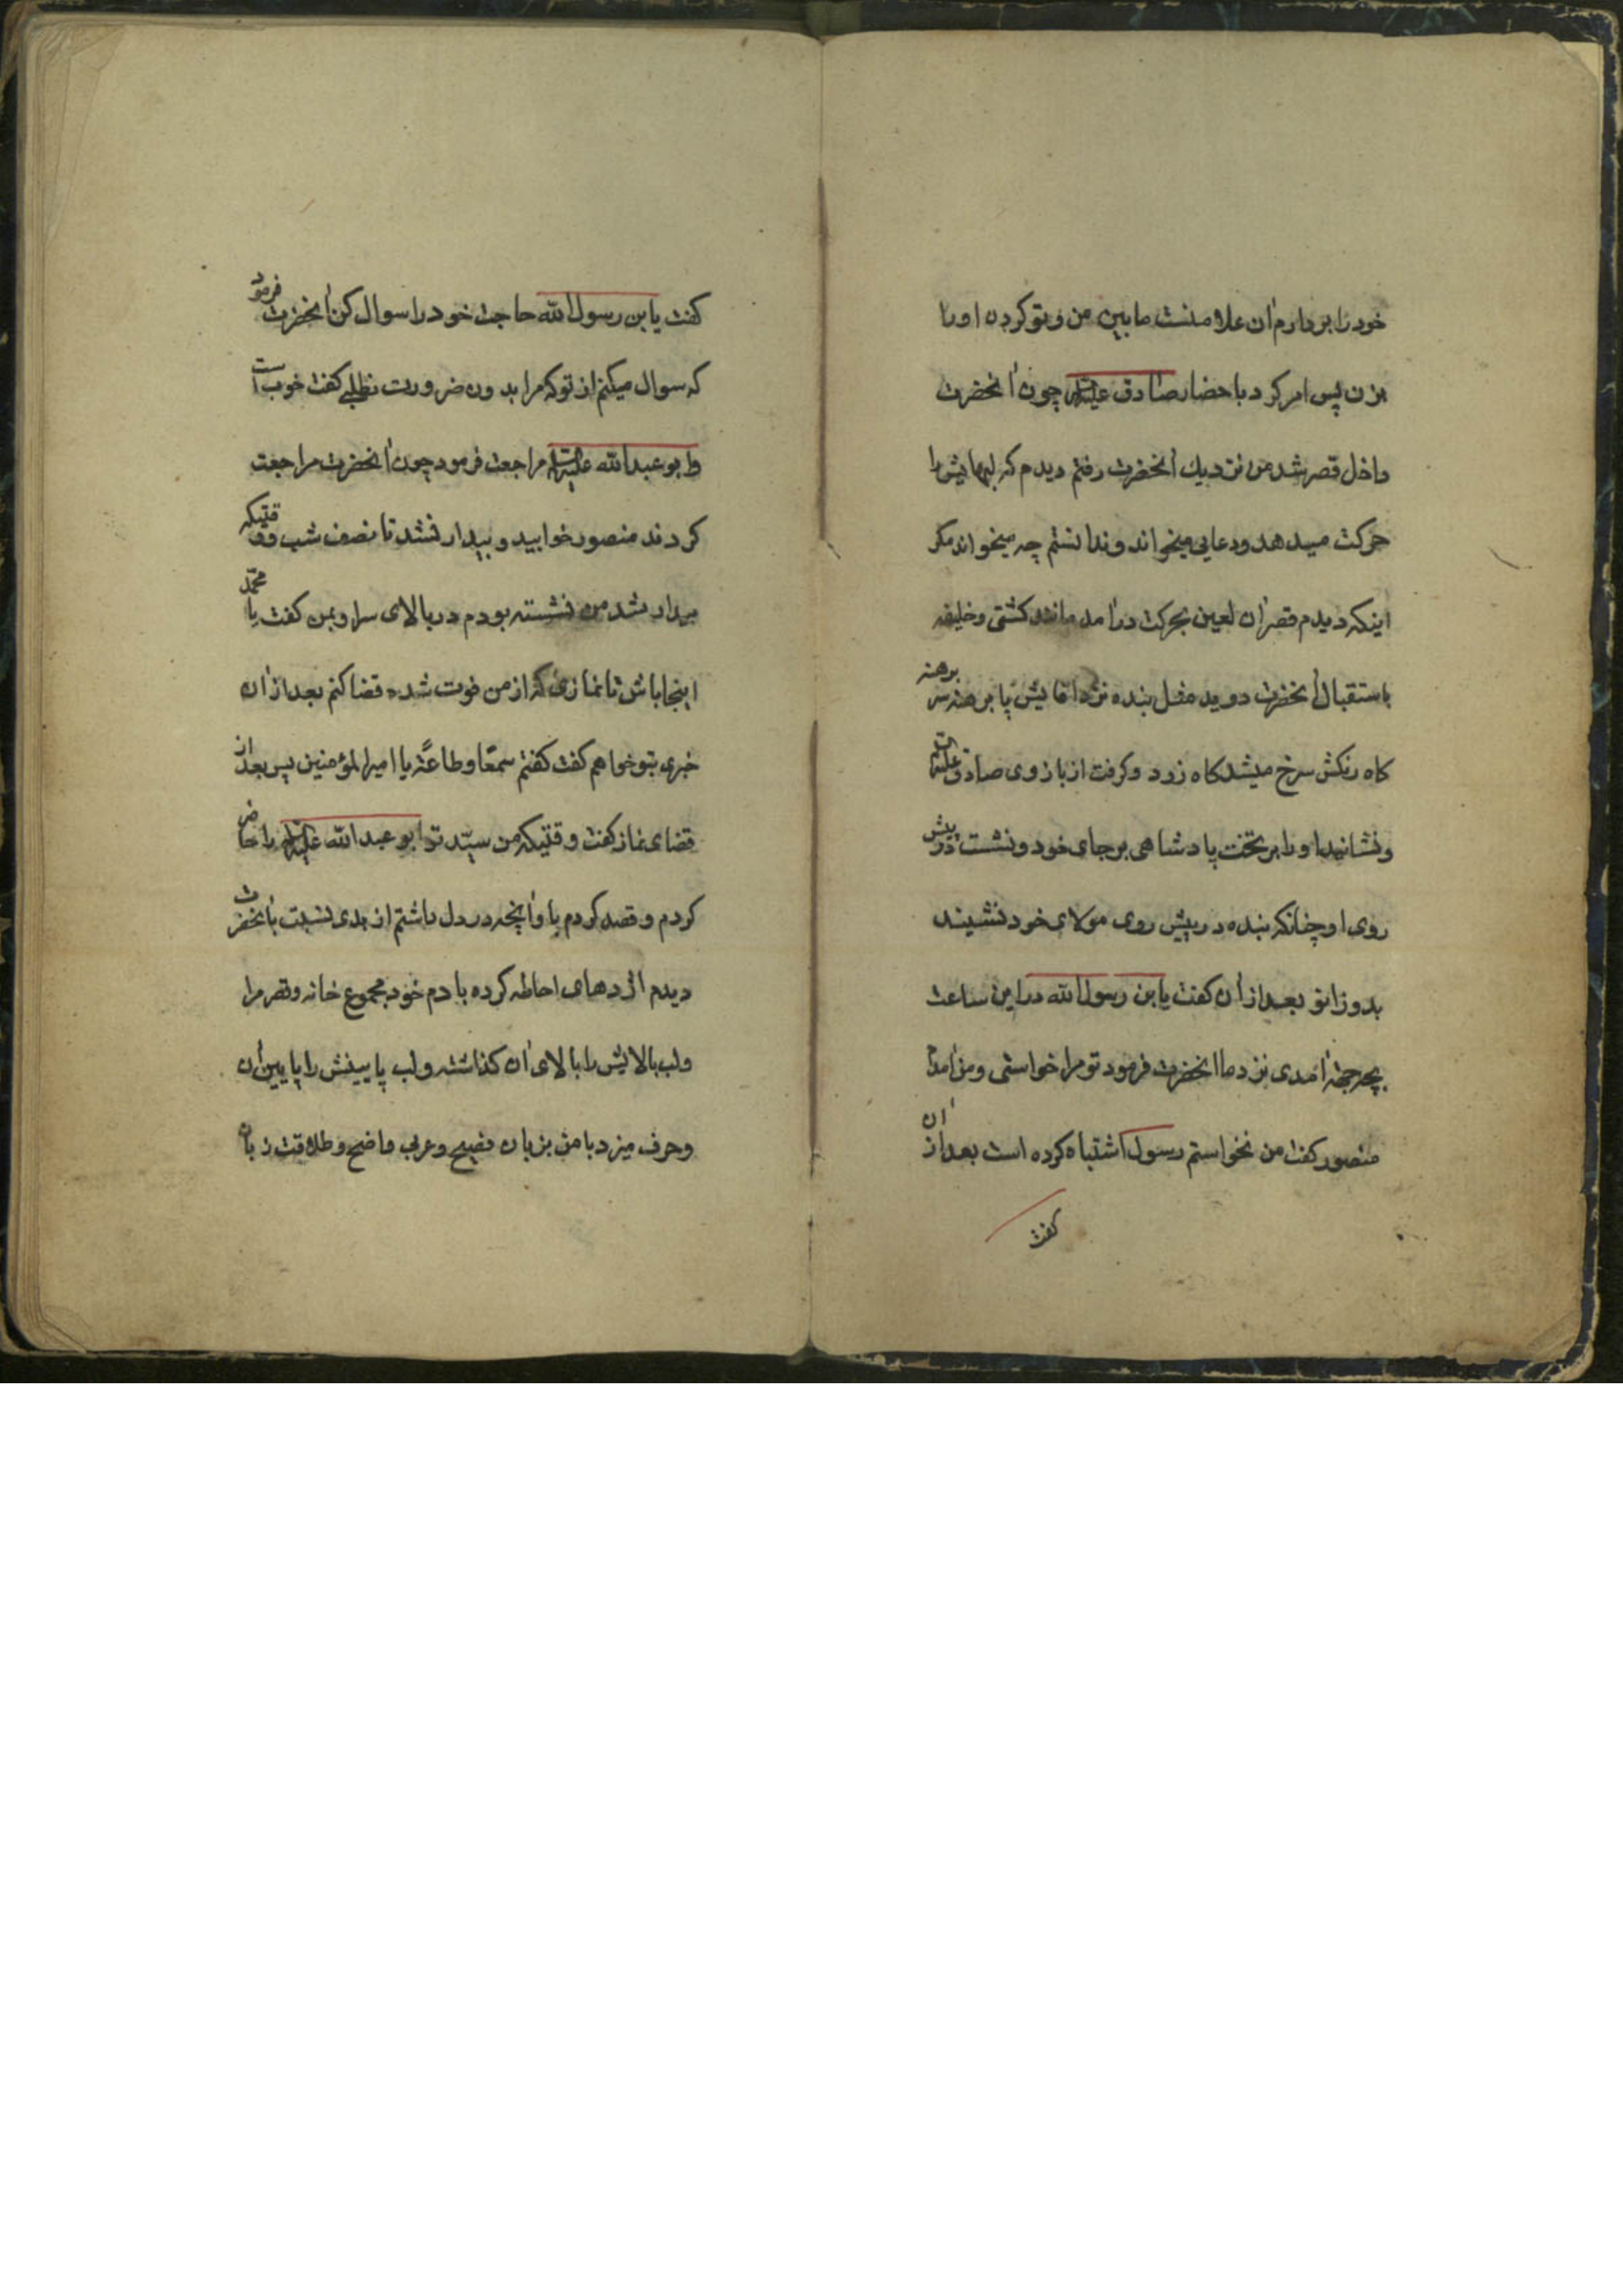 خود را بردارم آن علامتست مابین من و تو کردن او را
بزن پس امر کرد باحضار صادق علیه السلام چون آنحضرت
داخل قصر شد من نزدیك آنحضرت رفتم دیدم که لبهایش را
حرکت میدهد و دعایی میخواند و ندانستم چه میخواند مکر
اینکه دیدم قصر آن لعین بحرکت درآمد مانند کشتی و خلیفه
باستقبال آنحضرت دوید مثل بنده نزد آقایش پا برهنه سر برهنه
کاه رنکش سرخ میشد کاه زرد و کرفت از بازوی صادق علیه السلام
و نشانید او را بر تخت پادشاهی بر جای خود و نشست در پیش
روی او چنانکه بنده در پیش روی مولای خود نشیند
بدو زانو بعد از آن کفت یابن رسول الله در این ساعت
بچه جهة آمدی نزد ما آنحضرت فرمود تو مرا خواستی و من آمدم
منصور کفت من نخواستم رسول اشتباه کرده است بعد از آن
کفت
کفت یابن رسول الله حاجت خود را سوال کن آنحضرت فرمود
که سوال میکنم از تو که مرا بدون ضرورت نطلبی کفت خوب است
و ابو عبدالله علیه السلام مراجعت فرمود چون آنحضرت مراجعت
کردند منصور خوابید و بیدار نشد تا نصف شب و وقتیکه
بیدار شد من نشسته بودم در بالای سر او بمن کفت یا محمد
اینجا باش تا نمازی که از من فوت شده قضا کنم بعد از آن
خبری بتو خواهم کفت کفتم سمعًا و طاعةً یا امیر المؤمنین پس بعد از
قضای نماز کفت وقتیکه من سیّد تو ابو عبد الله علیه السلام را حاضر
کردم و قصد کردم با و آنچه در دل داشتم از بدی نسبت بآنحضرت
دیدم اژدهای احاطه کرده با دم خود مجموع خانه و قصر مرا
و لب بالایش را بالای آن کذاشته و لب پایینش را پایین آن
و حرف میزد با من بزبان فصیح و عربی واضح و طلاقت زبان